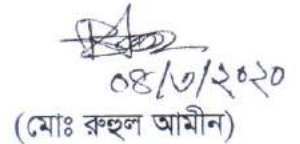 ০৪/৩/২০২০
(মোঃ রুহুল আমীন)